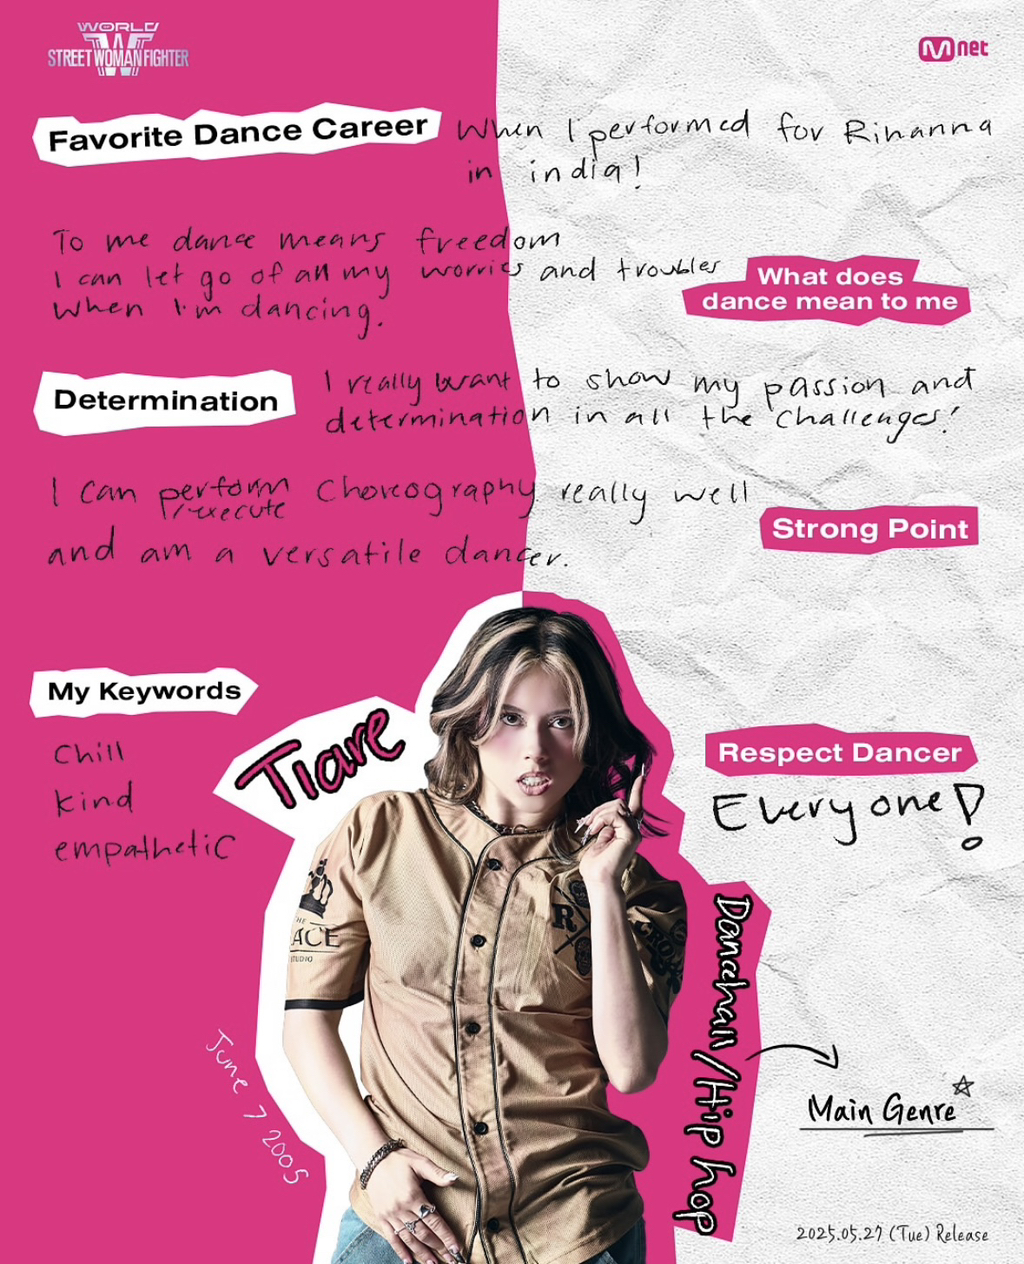 WORLD
W
STREET WOMAN FIGHTER
Mnet
Favorite Dance Career
When I performed for Rihanna
in india!
To me dance means freedom
I can let go of all my worries and troubles
When I'm dancing.
What does
dance mean to me
Determination
I really want to show my passion and
determination in all the challenges!
I can perform choreography really well
/execute
and am a versatile dancer.
Strong Point
My Keywords
Chill
kind
empathetic
Tiare
Respect Dancer
Everyone!
THE
ACE
STUDIO
R
CRO
Dancehall/Hip hop
Main Genre
June 7 2005
2025.05.27 (Tue) Release